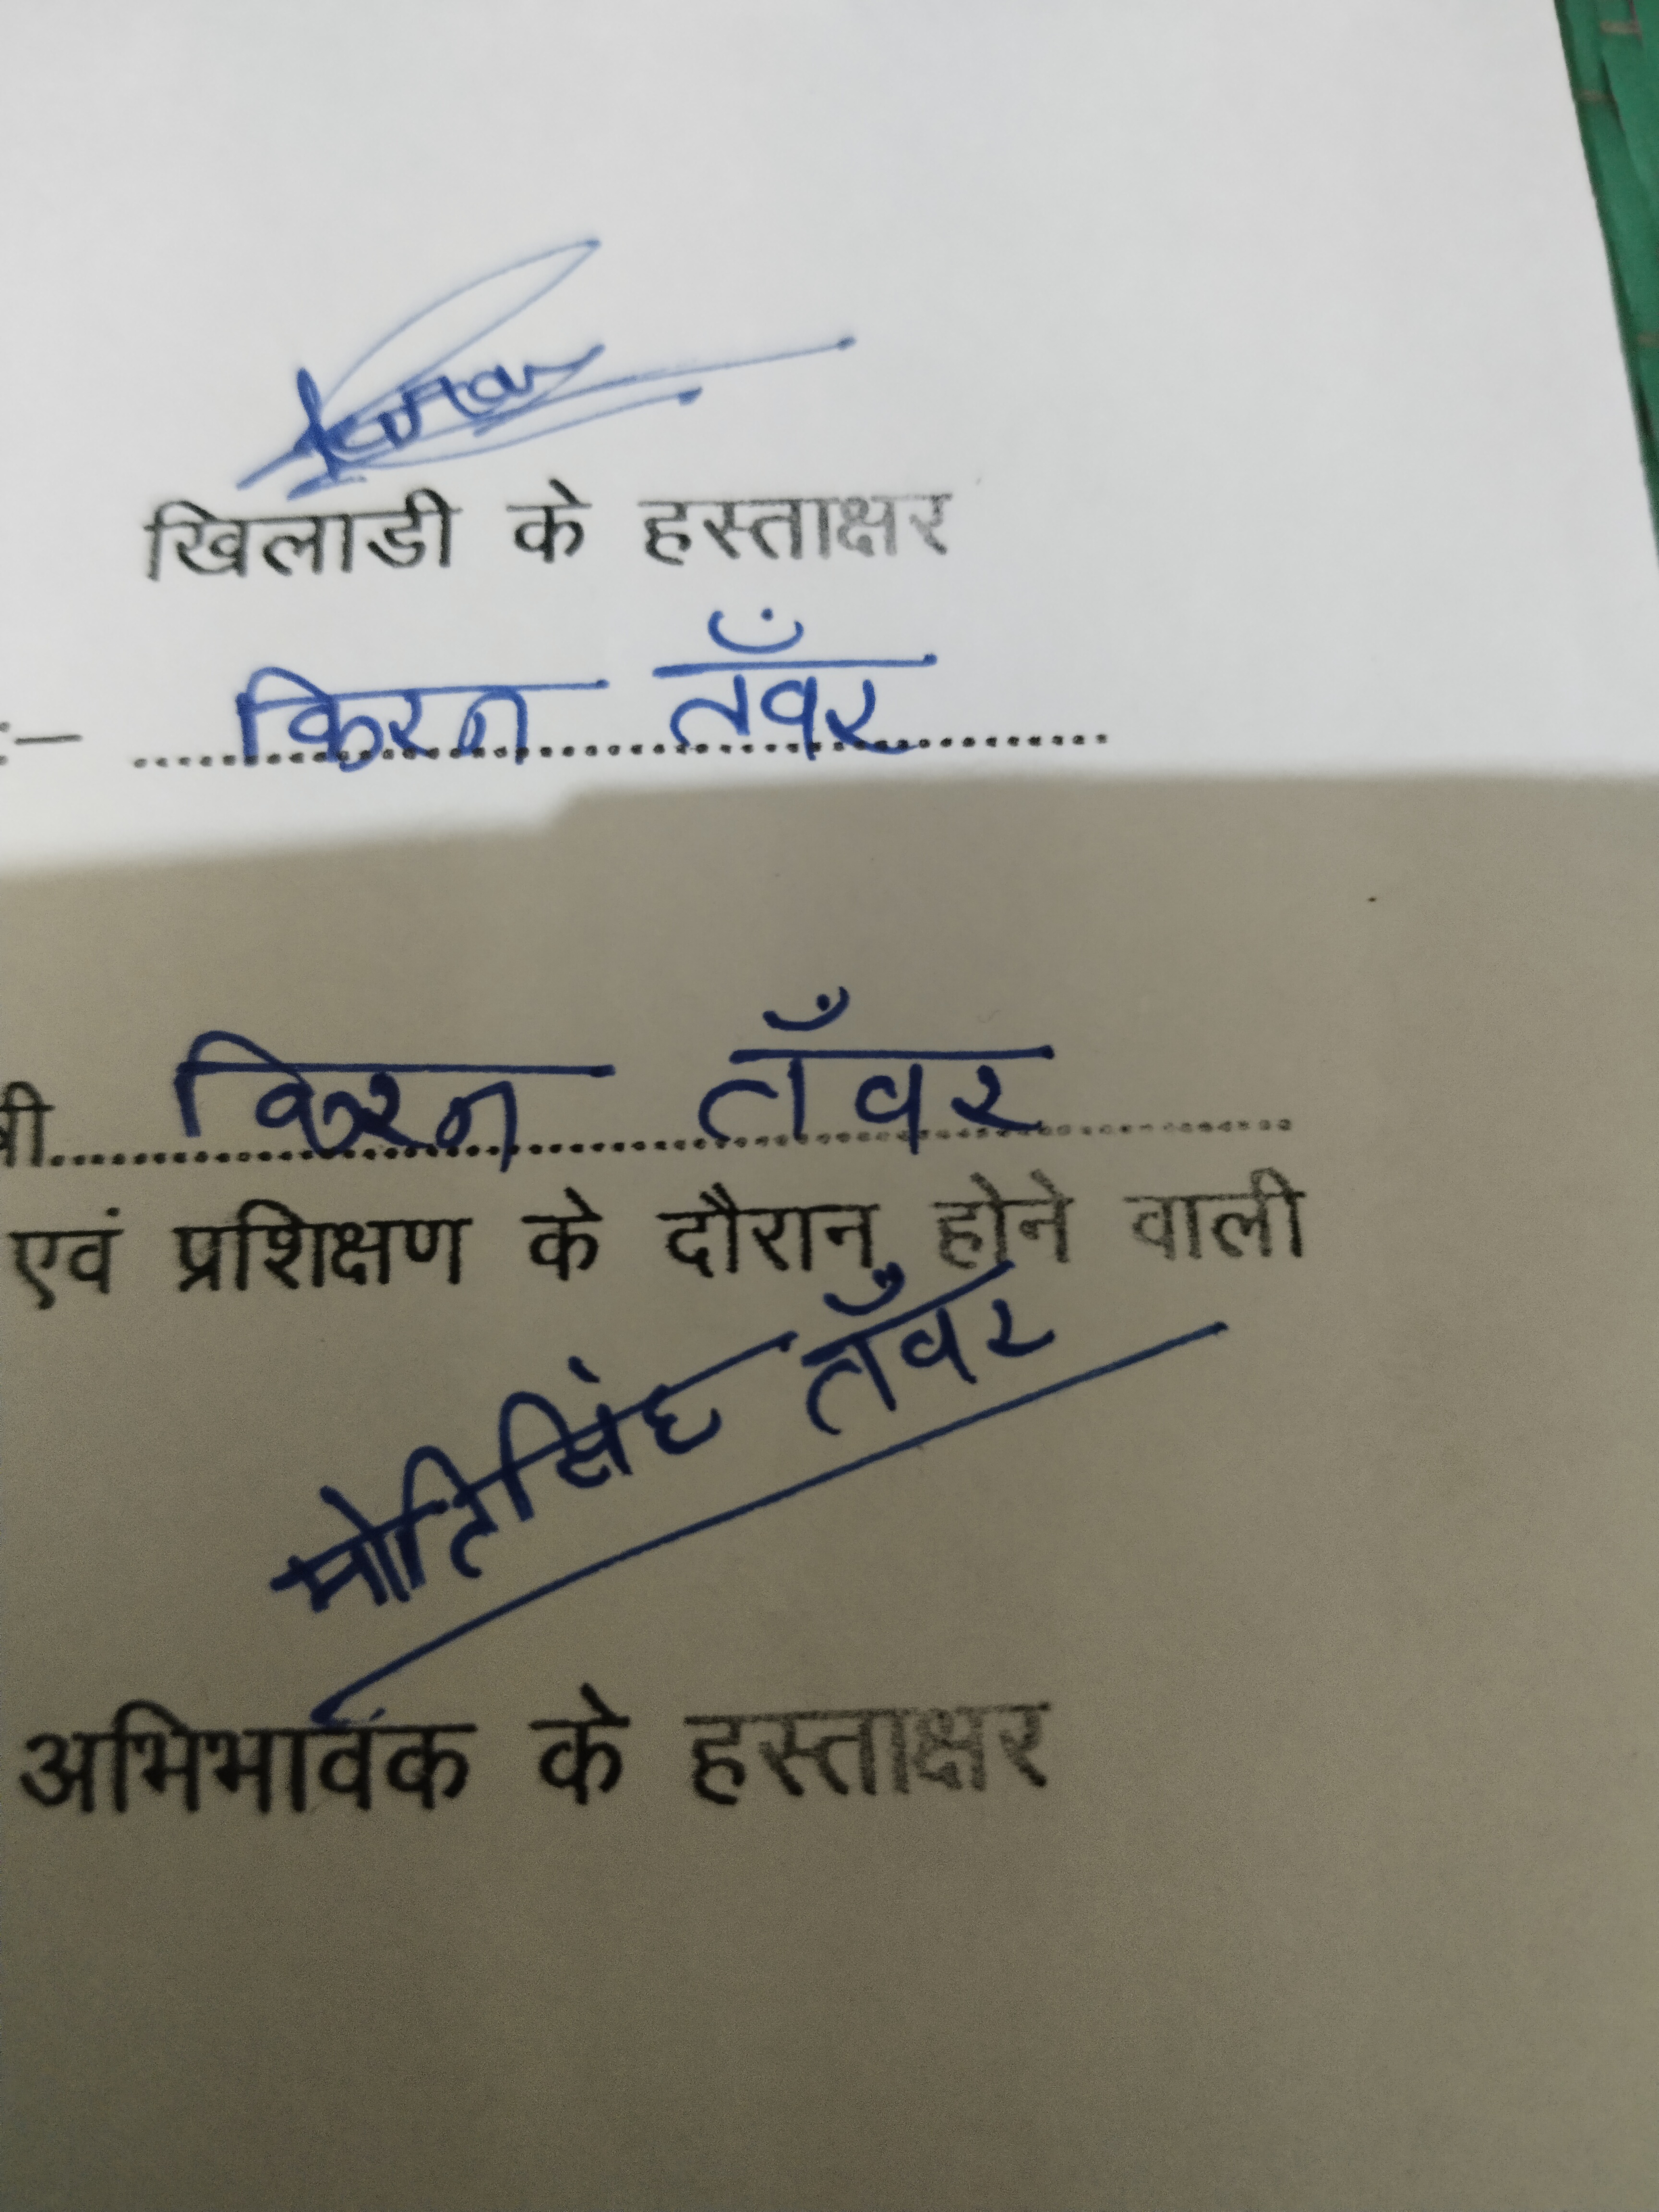 Kiran
खिलाडी के हस्ताक्षर
:– किरन तँवर
किरन तँवर
एवं प्रशिक्षण के दौरान होने वाली
मोतिसिंह तँवर
अभिभावक के हस्ताक्षर